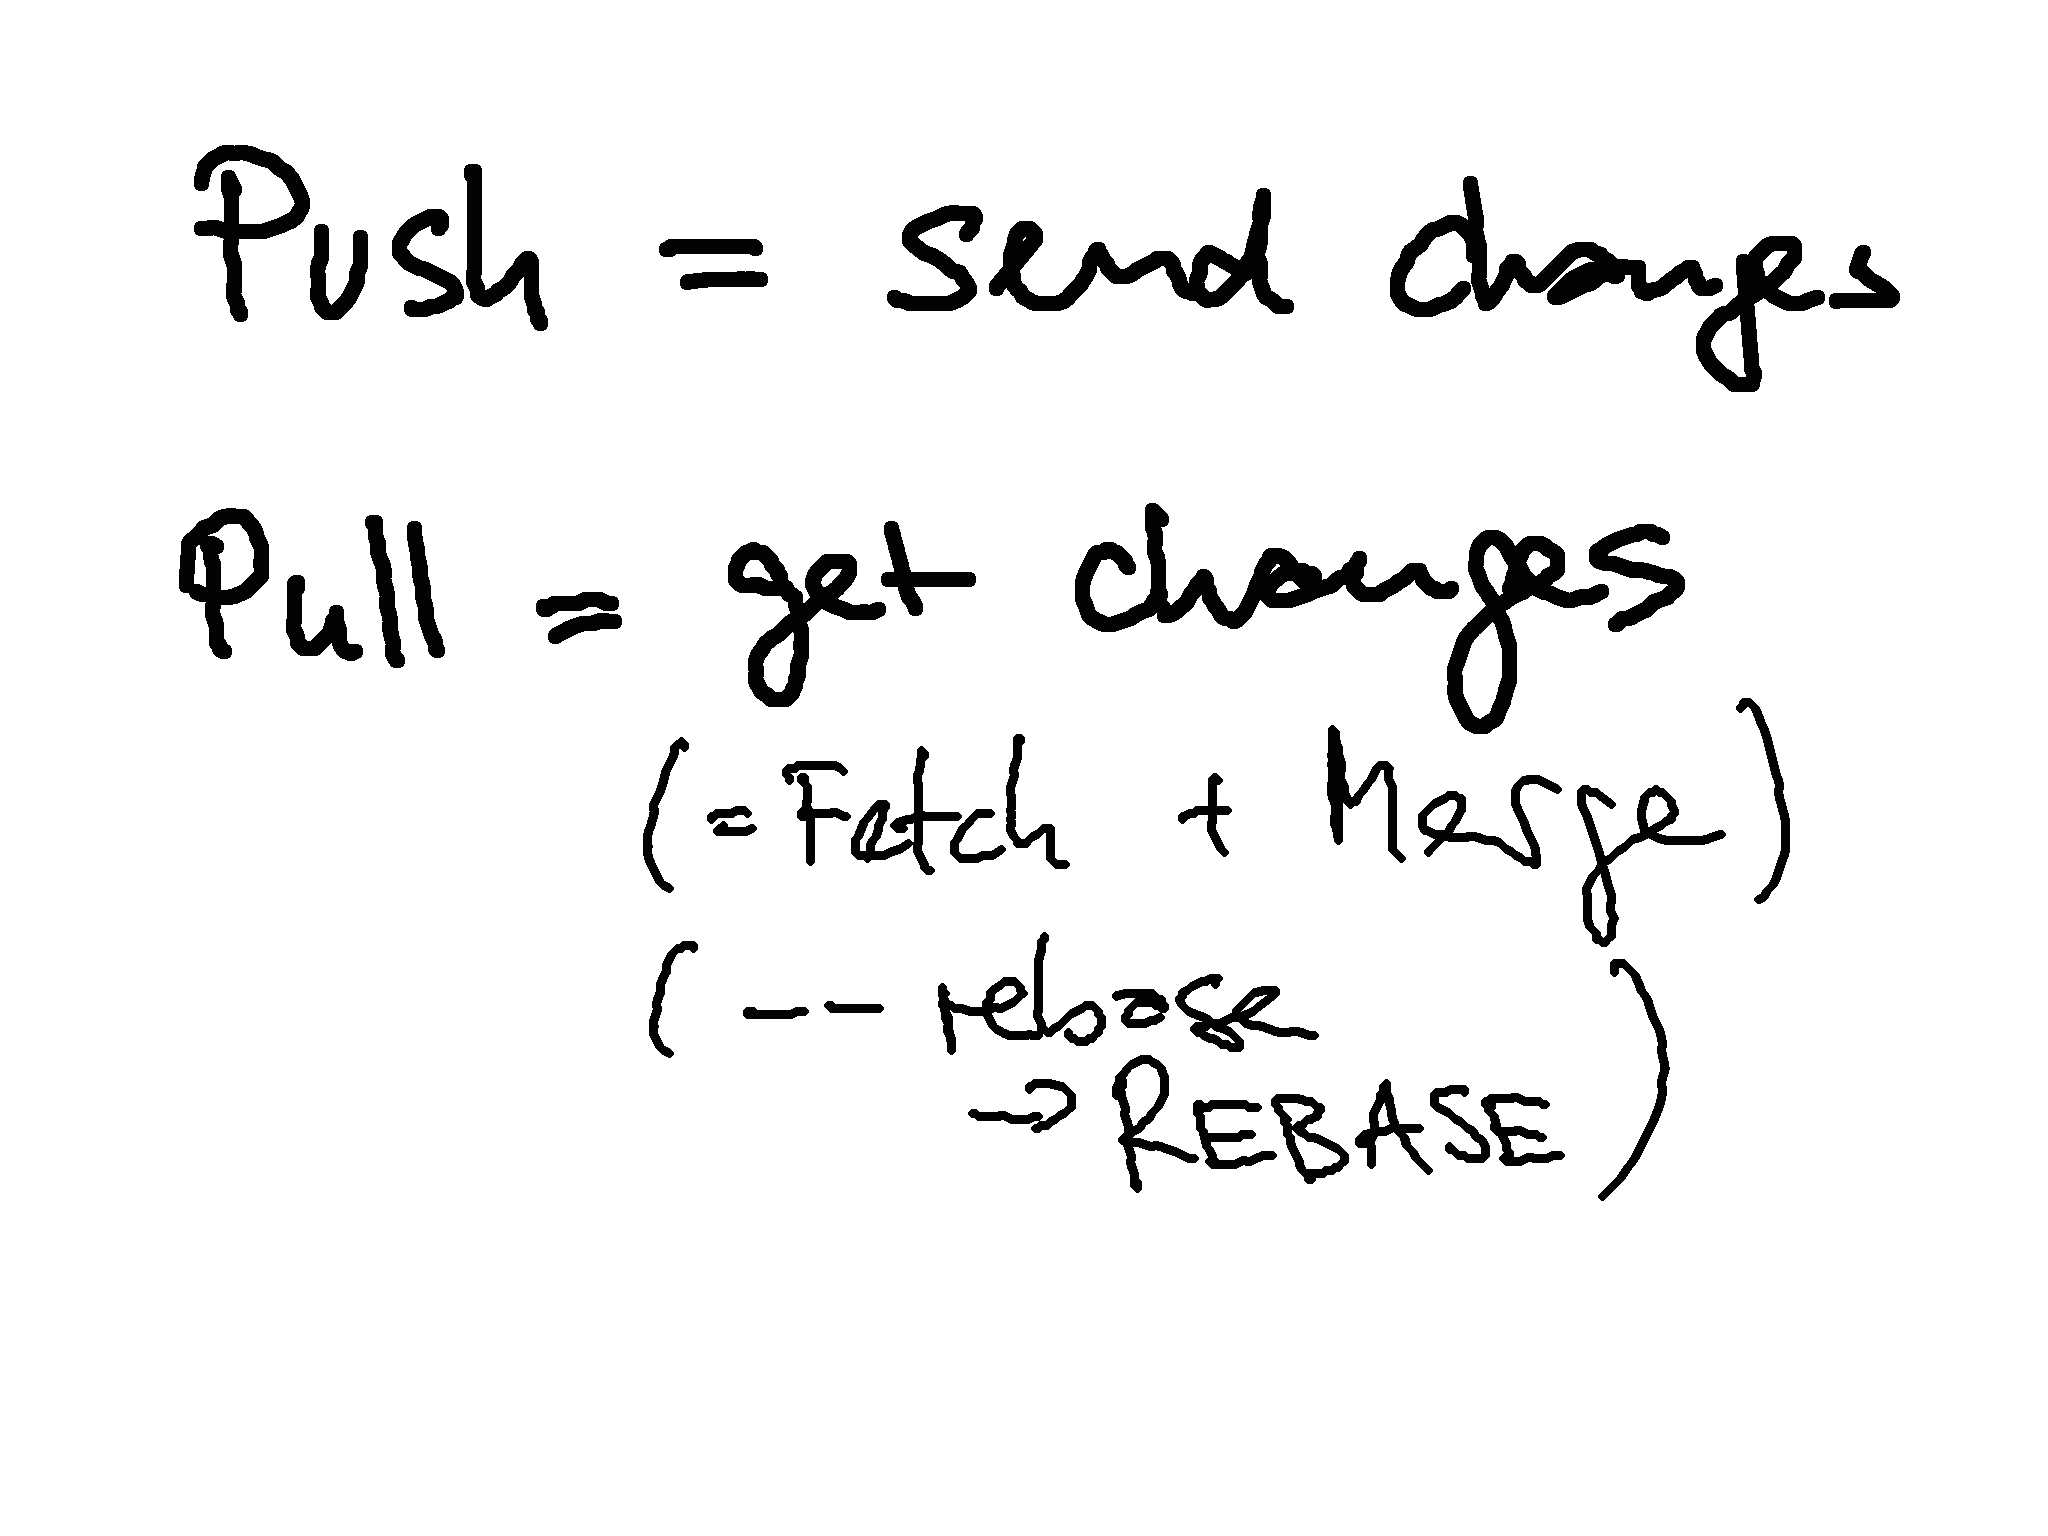 Push = send changes
Pull = get changes
(= Fetch + Merge)
(-- rebase
→ REBASE)